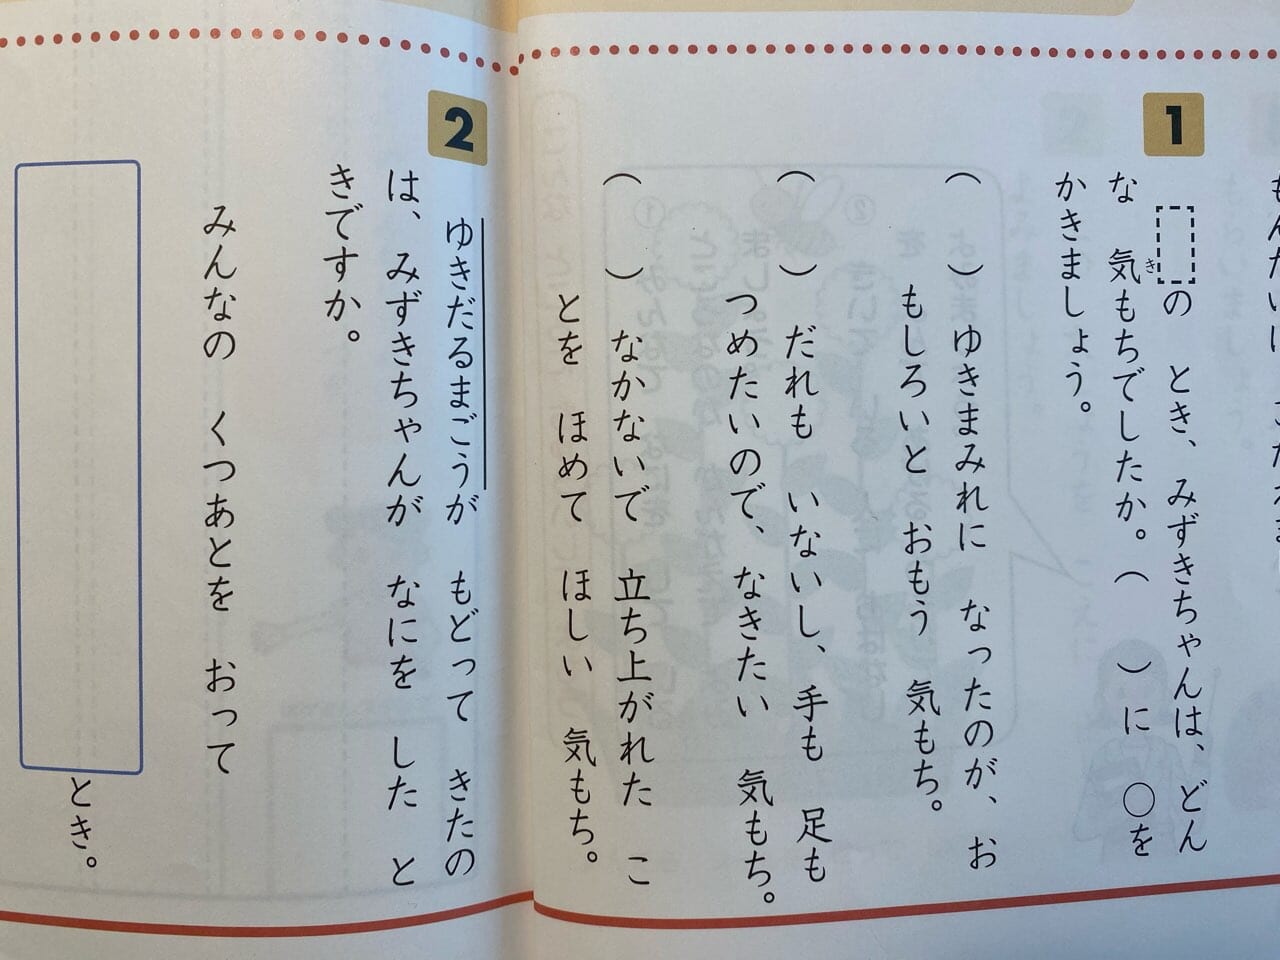 1
の　とき、みずきちゃんは、どん
な　気もちでしたか。（　）に　○を
き
かきましょう。
（　）ゆきまみれに　なったのが、お
もしろいと　おもう　気もち。
（　）だれも　いないし、手も　足も
つめたいので、なきたい　気もち。
（　）なかないで　立ち上がれた　こ
とを　ほめて　ほしい　気もち。
2
ゆきだるまごうが　もどって　きたの
は、みずきちゃんが　なにを　した　と
きですか。
みんなの　くつあとを　おって
とき。